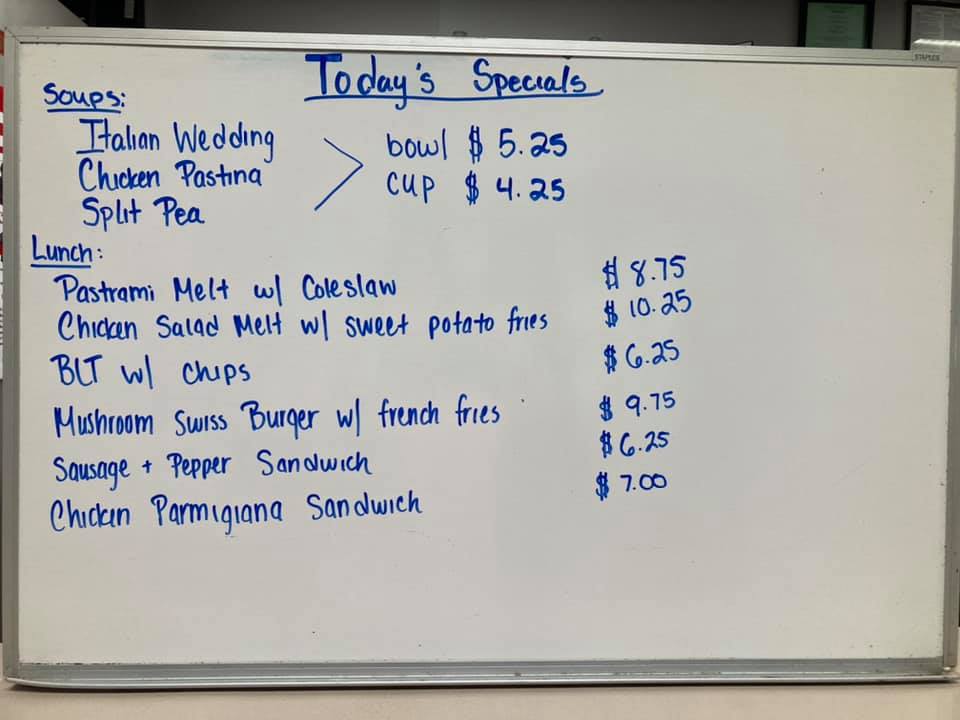 Today's Specials
Soups:
Italian Wedding
Chicken Pastina
Split Pea
bowl $ 5.25
cup $ 4.25
Lunch:
Pastrami Melt w/ Coleslaw $ 8.75
Chicken Salad Melt w/ sweet potato fries $ 10.25
BLT w/ chips $ 6.25
Mushroom Swiss Burger w/ french fries $ 9.75
Sausage + Pepper Sandwich $ 6.25
Chicken Parmigiana Sandwich $ 7.00
STAPLES